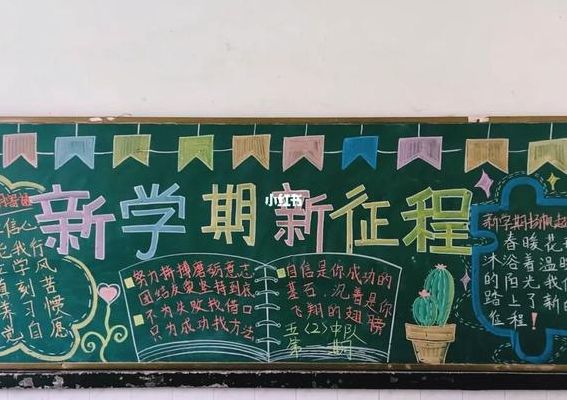 新学期新征程
小红书
信心
能我行
学风
真刻苦
习惯
觉自愿
努力拼搏磨砺意志
团结友爱坚持到底
不为失败找借口
只为成功找方法
自信是你成功的
基石,沉着是你
飞翔的翅膀
五(2)中队
第一期
新学期扬帆起
春暖花
沐浴着温暖
的阳光,我们
踏上了新的
征程!